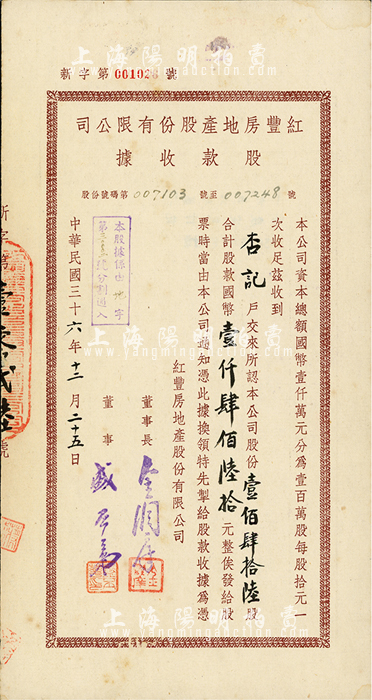 上海陽明拍賣
新字第001026號
紅豐房地產股份有限公司
股款收據
股份號碼第007103號至007248號
本公司資本總額國幣壹仟萬元分為壹百萬股每股拾元一
次收足茲收到
杏記戶交來所認本公司股份壹佰肆拾陸股
合計股款國幣壹仟肆佰陸拾元整俟發給股
票時當由本公司通知憑此據換領特先掣給股款收據為憑
紅豐房地產股份有限公司
董事長
董事
本股據係由地字
分割過入
中華民國三十六年十二月二十五日
上海陽明拍賣
www.yangmingauction.com
上海陽明拍賣